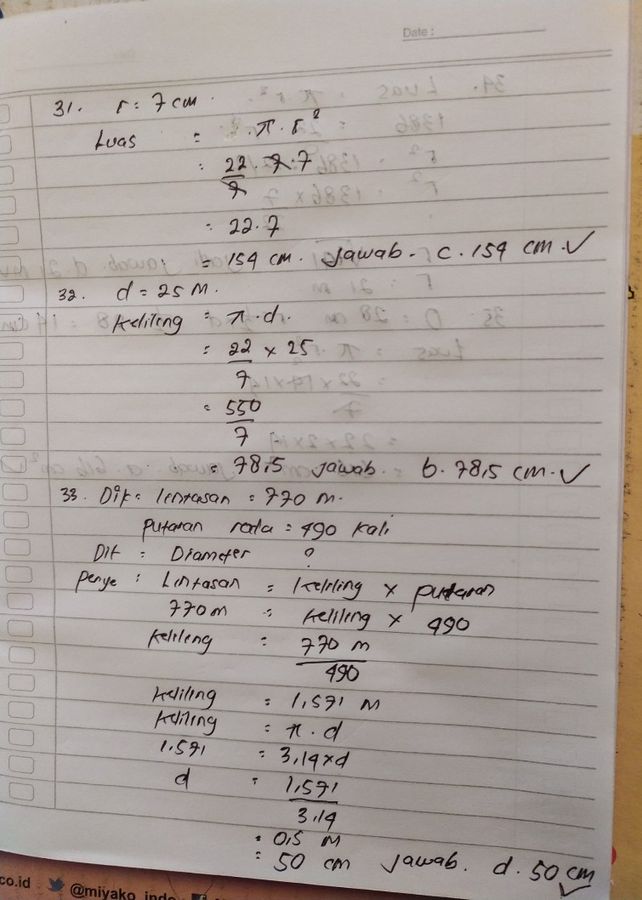 Date :
31. r = 7 cm.
Luas = π . r²
= 22/7 . 7 . 7
= 22 . 7
= 154 cm. jawab. c. 154 cm. ✓
32. d = 25 M.
Keliling = π . d.
= 22/7 x 25
= 550/7
= 78,5 jawab. b. 78,5 cm. ✓
33. Dik = lintasan = 770 m.
putaran roda = 490 kali
Dit = Diameter ?
Penye : Lintasan = Keliling x putaran
770 m = Keliling x 490
Keliling = 770 m/490
Keliling = 1,571 M
Keliling = π . d
1,571 = 3,14 x d
d = 1,571/3,14
= 0,5 M
= 50 cm jawab. d. 50 cm ✓
co.id @miyako_indo